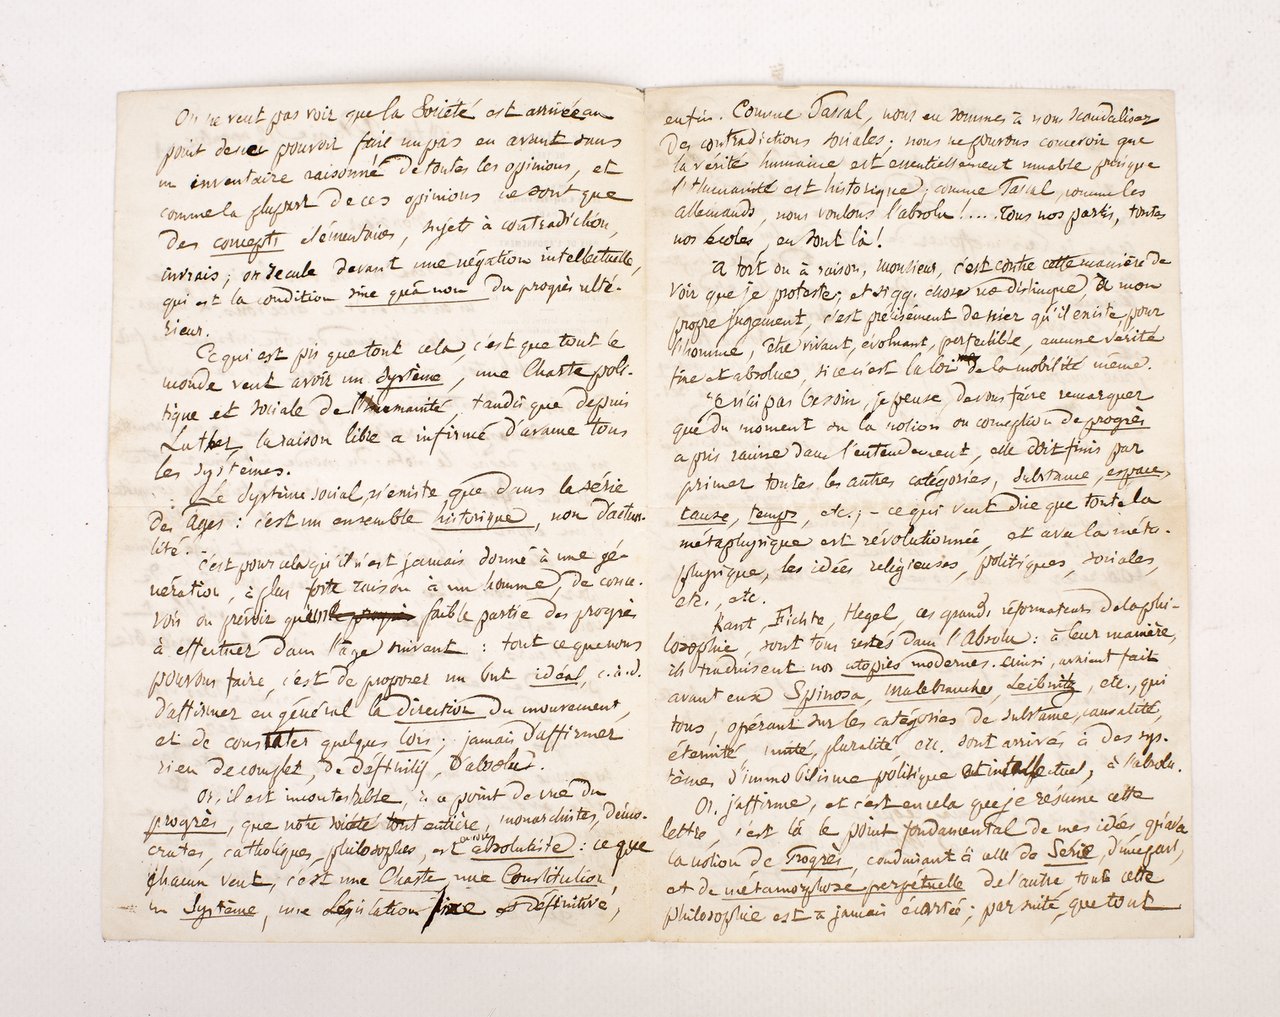 On ne veut pas voir que la Société est arrivée au
point de ne pouvoir faire un pas en avant sans
un inventaire raisonné de toutes les opinions, et
comme la plupart de ces opinions ne sont que
des concepts élémentaires, sujets à contradiction,
invrais; on recule devant une négation intellectuelle,
qui est la condition sine quâ non du progrès ulté-
rieur.
Ce qui est pis que tout cela, c'est que tout le
monde veut avoir un Système, une Charte poli-
tique et sociale de l'humanité, tandis que depuis
Luther, la raison libre a infirmé d'avance tous
les systèmes.
Le Système social n'existe que dans la série
des âges : c'est un ensemble historique, non d'actua-
lité.
C'est pour cela qu'il n'est jamais donné à une gé-
nération, à plus forte raison à un homme, de conce-
voir ou prévoir qu'une faible partie des progrès
à effectuer dans l'âge suivant : tout ce que nous
pouvons faire, c'est de proposer un but idéal, c.à.d.
d'affirmer en général la direction du mouvement,
et de constater quelques lois; jamais d'affirmer
rien de complet, de définitif, d'absolu.
Or, il est incontestable, à ce point de vue du
progrès, que notre société tout entière, monarchistes, démo-
crates, catholiques, philosophes, est encore absolutiste : ce que
chacun veut, c'est une Charte, une Constitution,
un Système, une Législation fixe et définitive,
enfin. Comme Pascal, nous en sommes à nous scandaliser
des contradictions sociales; nous ne pouvons concevoir que
la vérité humaine est essentiellement muable puisque
l'Humanité est historique; comme Pascal, comme les
allemands, nous voulons l'absolu !.... Tous nos partis, toutes
nos écoles, en sont là !
A tort ou à raison, Monsieur, c'est contre cette manière de
voir que je proteste; et si qq. chose me distingue, à mon
propre jugement, c'est précisément de nier qu'il existe pour
l'homme, être vivant, évoluant, perfectible, aucune vérité
fixe et absolue, si ce n'est la loi de la mobilité même.
Je n'ai pas besoin, je pense, de vous faire remarquer
que du moment où la notion ou conception de progrès
a pris racine dans l'entendement, elle doit finir par
primer toutes les autres catégories, substance, espace,
cause, temps, etc.; - ce qui veut dire que toute la
métaphysique est révolutionnée, et avec la méta-
physique, les idées religieuses, politiques, sociales,
etc., etc.
Kant, Fichte, Hegel, ces grands réformateurs de la phi-
losophie, sont tous restés dans l'Absolu : à leur manière,
ils traduisent nos utopies modernes. Ainsi, avaient fait
avant eux Spinosa, Malebranche, Leibnitz, etc., qui
tous, opérant sur les catégories de substance, causalité,
éternité, unité, pluralité, etc. sont arrivés à des sys-
tèmes d'immobilisme politique et intellectuel, à l'absolu.
Or, j'affirme, et c'est en cela que je résume cette
lettre, c'est là le point fondamental de mes idées, qu'avec
la notion de Progrès, conduisant à celle de Série, d'une part,
et de métamorphose perpétuelle de l'autre, toute cette
philosophie est à jamais écartée; par suite, que tout